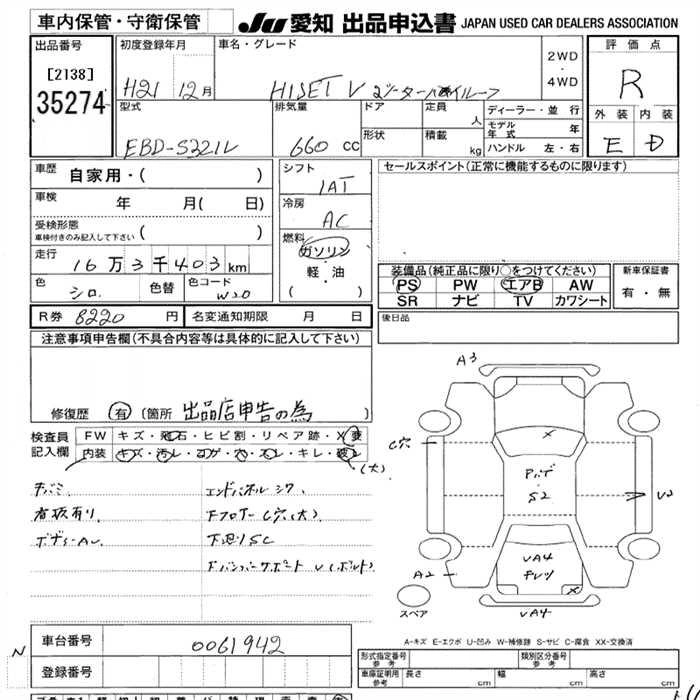 車内保管・守衛保管
JU 愛知 出品申込書 JAPAN USED CAR DEALERS ASSOCIATION
出品番号
[2138]
35274
初度登録年月
H21 12月
車名・グレード
HIJET V
2WD
・
4WD
評価点
R
外装 内装
E D
型式
EBD-S321V
排気量
660 cc
ドア
定員
人
形状
積載
kg
ディーラー・並行
モデル年式 年
ハンドル 左・右
車歴
自家用・( )
車検
年 月( 日)
受検形態
車検付きのみ記入して下さい ( )
走行
16万3千403km
色
シロ
色替
色コード
W20
シフト
IAT
冷房
AC
燃料
ガソリン
・
軽・油
( )
セールスポイント(正常に機能するものに限ります)
装備品(純正品に限り○をつけてください)
PS PW エアB AW
SR ナビ TV カワシート
新車保証書
有・無
R券 8220 円
名変通知期限 月 日
後日品
注意事項申告欄(不具合内容等は具体的に記入して下さい)
修復歴 有 (箇所 出品店申告の為 )
検査員
記入欄
FW キズ・飛石・ヒビ割・リペア跡・X要
内装 キズ・汚レ・コゲ・穴・スレ・キレ・破レ
(大)
看板有り
エンドパネル
下フロアー C穴(大)
下廻りSC
A3
C穴
S2
A2
VA4
VA4
スペア
A-キズ E-エクボ U-凹み W-補修跡 S-サビ C-腐食 XX-交換済
N
車台番号
0061942
登録番号
形式指定番号
参考
類別区分番号
参考
車庫証明用
参考
長さ cm
幅 cm
高さ cm